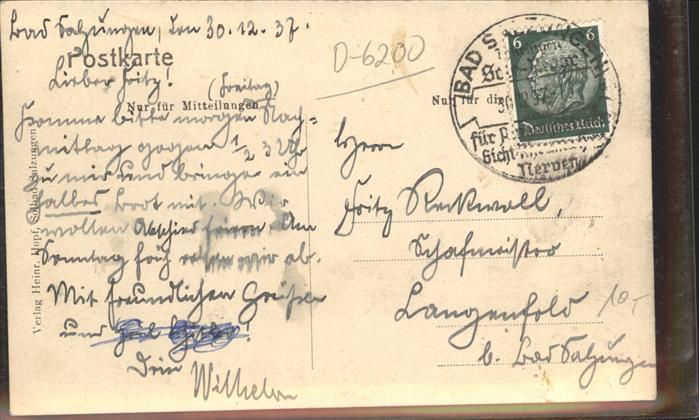 Bad Salzungen, den 30.12.37.
Postkarte
D-6200
Lieber Fritz!
(Freitag)
Nur für Mitteilungen
Nur für die
Komme bitte morgen Nach=
mittag gegen 1/2 3 Uhr
zu mir und bringe ein
halbes Brot mit. Wir
wollten Abschied feiern. Am
Sonntag früh wir ab.
Mit freundlichen Grüßen
und Heil Hitler!
Dein
Wilhelm
Verlag Heinr. Hopf, Solbad Salzungen
BAD SALZUNGEN
30.12.37
für
Gicht
Nerven
6 6
Deutsches Reich
Herrn
Fritz
Schafmeister
Langenfeld
b. Bad Salzungen
10,-